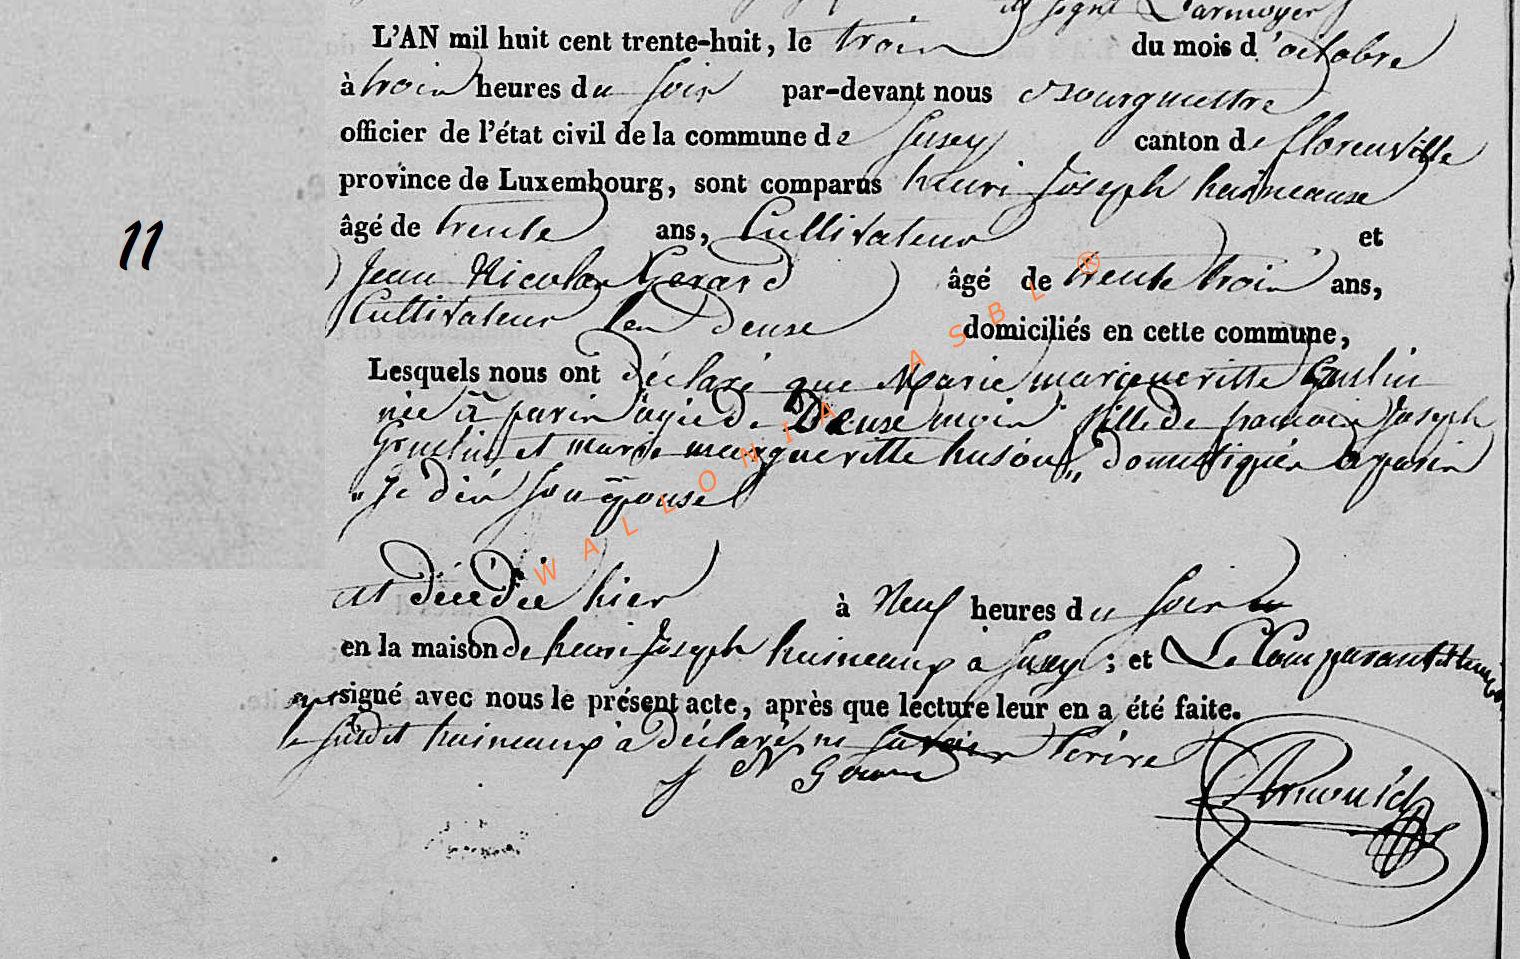 signé Darmoyer
L'AN mil huit cent trente-huit, le trois du mois d'octobre
à trois heures du soir par-devant nous Bourguettre
officier de l'état civil de la commune de Jusey canton de florenville
province de Luxembourg, sont comparus henri Joseph huineause
âgé de trente ans, Cultivateur et
Jean Nicolas Gerard âgé de trente trois ans,
Cultivateur Les deuse domiciliés en cette commune,
Lesquels nous ont déclaré que Marie margueritte Guslin
née à paris agée de Deuse mois fille de francois Joseph
Guslin et marie margueritte huson domestiques a paris
son épouse
est décédée hier à Neuf heures du soir
en la maison de henri Joseph huineaux a Jusey ; et Le Comparant et temoin
signé avec nous le présent acte, après que lecture leur en a été faite.
le sudit huineaux à déclaré ne savoir Ecrire
J N Gerard
WALLONIA ASBL ®
11